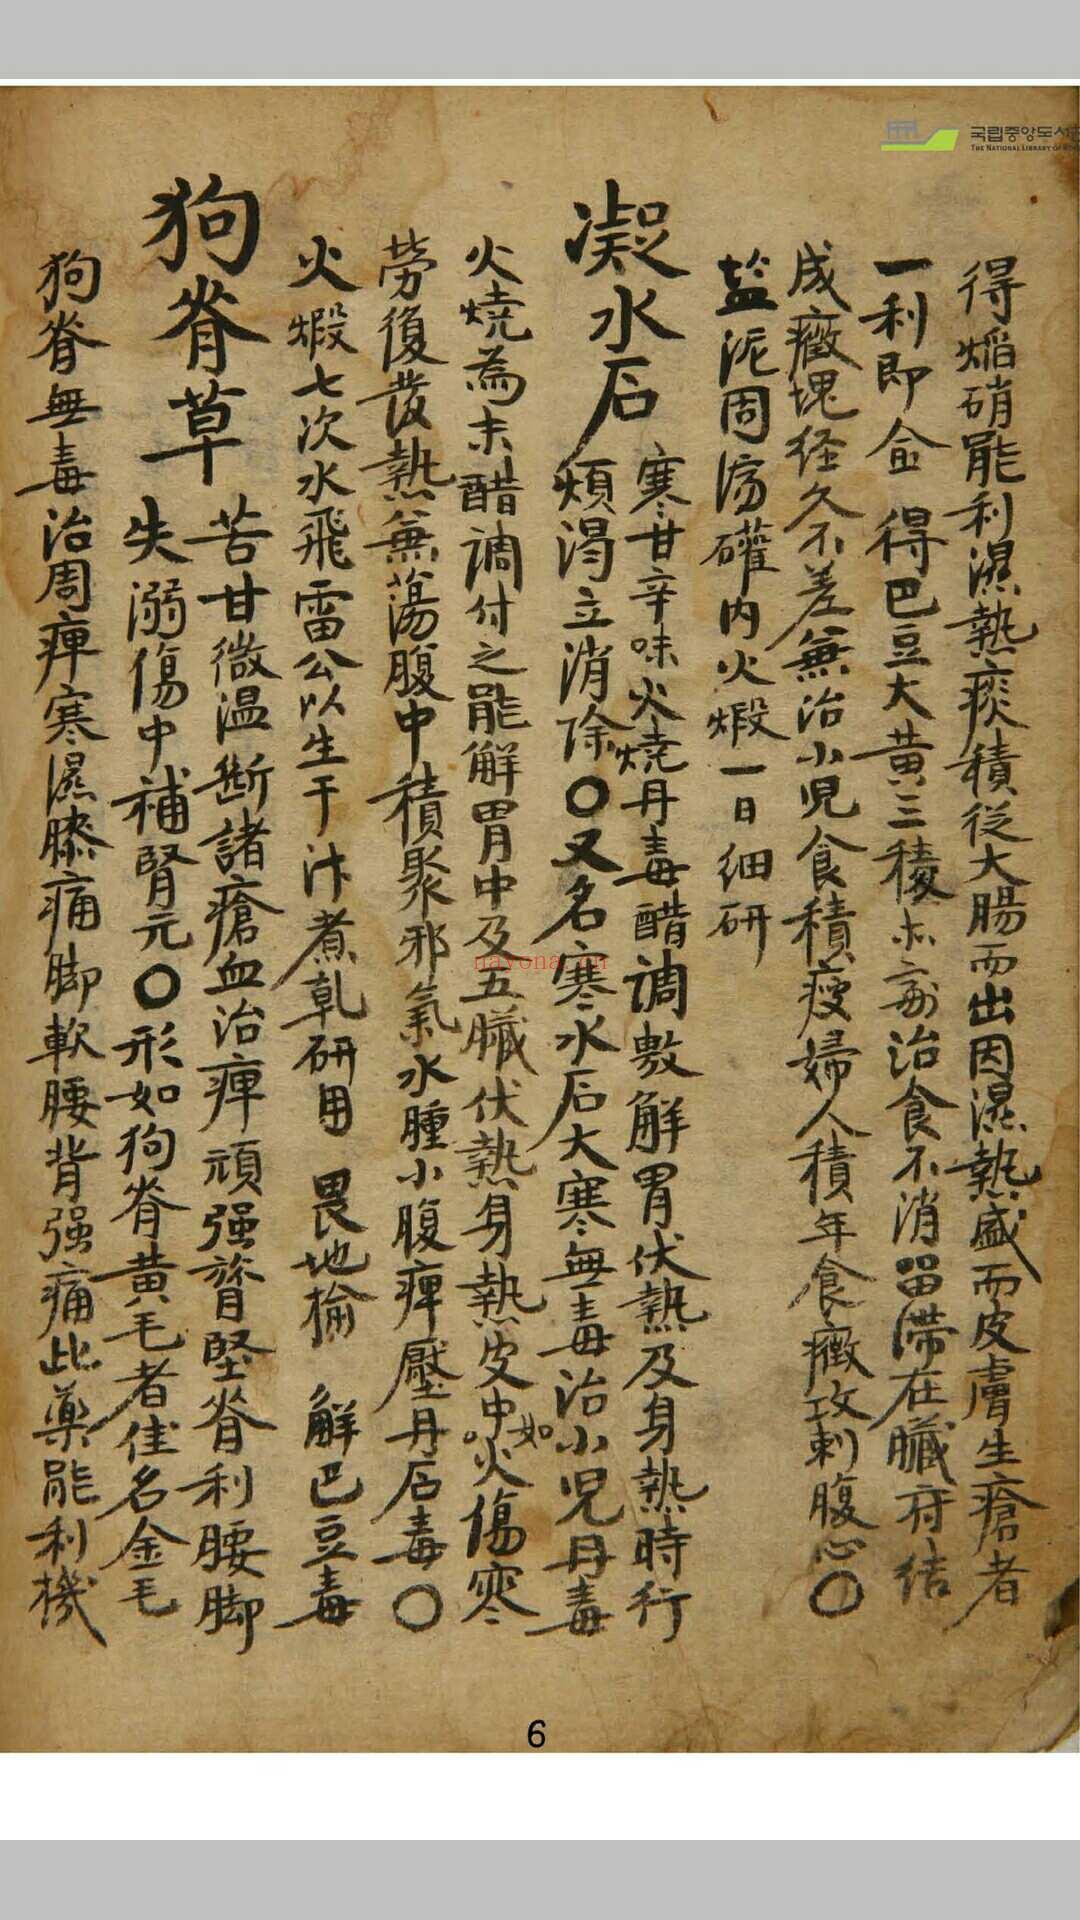 국립중앙도서관
THE NATIONAL LIBRARY OF KOREA
得焰硝能利濕熱痰積従大腸而出因濕熱盛而皮膚生瘡者
一利即佥 得巴豆大黄三稜 治食不消畄滯在臟府结
成癥塊经久不差無治小児食積瘦婦人積年食癥攻刺腹心〇
盐泥周済礶内火煅一日细研
凝水石
寒甘辛味火燒丹毒醋調敷解胃伏熱及身熱時行
煩渴立消除〇又名寒水石大寒無毒治小児丹毒
火燒為末醋調付之能解胃中及五臟伏熱身熱皮中如火傷寒
劳復发熱兼蕩腹中積聚邪氣水腫小腹痺壓丹石毒〇
火煅七次水飛雷公以生干汁煮乹研用 畏地榆 解巴豆毒
狗脊草
苦甘微温断諸瘡血治痺頑强膂堅脊利腰脚
失溺傷中補腎元〇形如狗脊黄毛者佳名金毛
狗脊無毒治周痺寒濕膝痛脚軟腰背强痛此藥能利機
nayona.cn
6